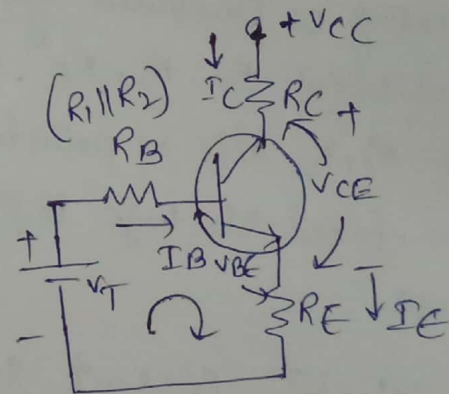 +VCC
IC RC +
(R1||R2)
RB
VCE
+
IB VBE
−
VT
RE IE
−